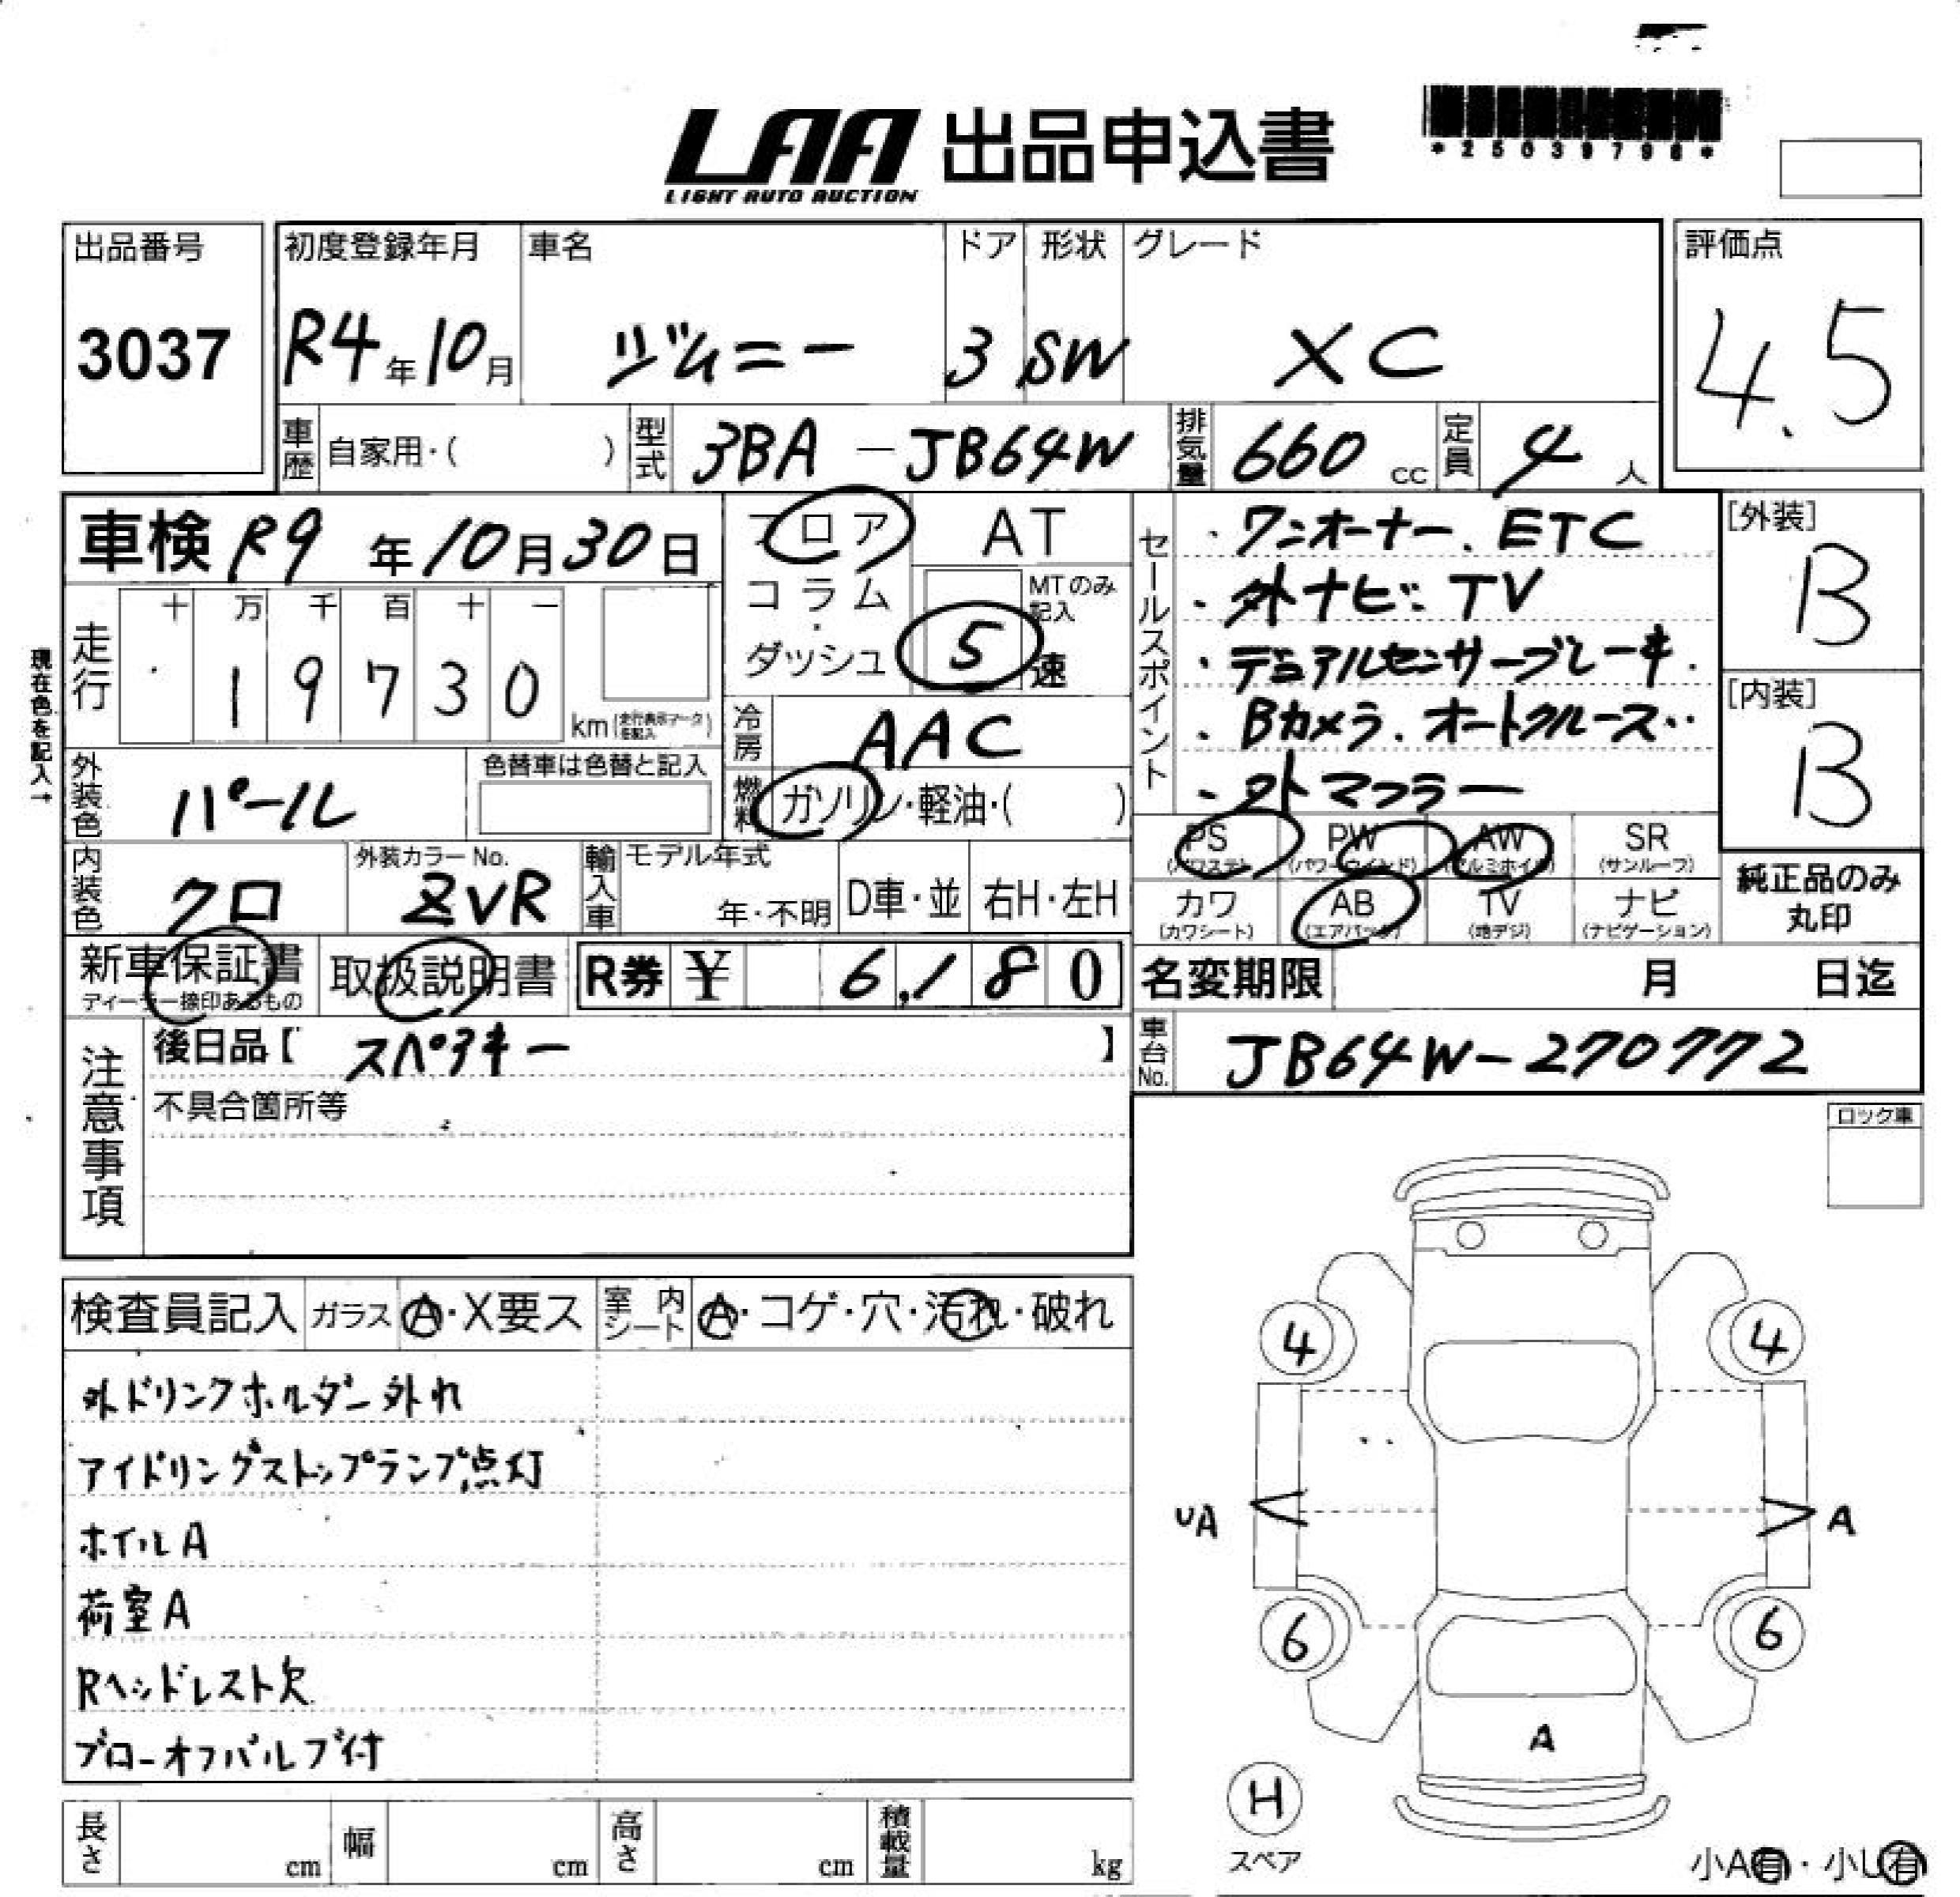 LAA 出品申込書
LIGHT AUTO AUCTION
*25039798*
出品番号 初度登録年月 車名 ドア 形状 グレード 評価点
3037 R4年10月 ジムニー 3 SW XC 4.5
車歴 自家用・( ) 型式 3BA-JB64W 排気量 660 cc 定員 4 人
車検 R9年10月30日
フロア AT
コラム MTのみ記入
ダッシュ 5 速
セールスポイント
・ワンオーナー.ETC
・外ナビ.TV
・デュアルセンサーブレーキ.
・Bカメラ.オートクルーズ..
・外マフラー
[外装]
B
[内装]
B
現在色を記入→
走行 十 万 千 百 十 一
19730 km(走行表示マークを記入)
冷房 AAC
外装色 パール 色替車は色替と記入
燃料 ガソリン・軽油・( )
PS(パワステ) PW(パワーウインド) AW(アルミホイル) SR(サンルーフ)
カワ(カワシート) AB(エアバック) TV(地デジ) ナビ(ナビゲーション)
純正品のみ
丸印
内装色 クロ 外装カラーNo. ZVR 輸入車 モデル年式 年・不明 D車・並 右H・左H
新車保証書 取扱説明書 R券 ¥ 6,180 名変期限 月 日迄
ディーラー捺印あるもの
注意事項
後日品【 スペアキー 】
車台No. JB64W-270772
不具合箇所等
ロック車
検査員記入 ガラス A・X要ス 室内シート A・コゲ・穴・汚れ・破れ
外ドリンクホルダー外れ
アイドリングストップランプ点灯
ホイルA
荷室A
Rヘッドレスト欠
ブローオフバルブ付
4 4
UA A
6 6
A
H
スペア
小A有・小U有
長さ cm 幅 cm 高さ cm 積載量 kg